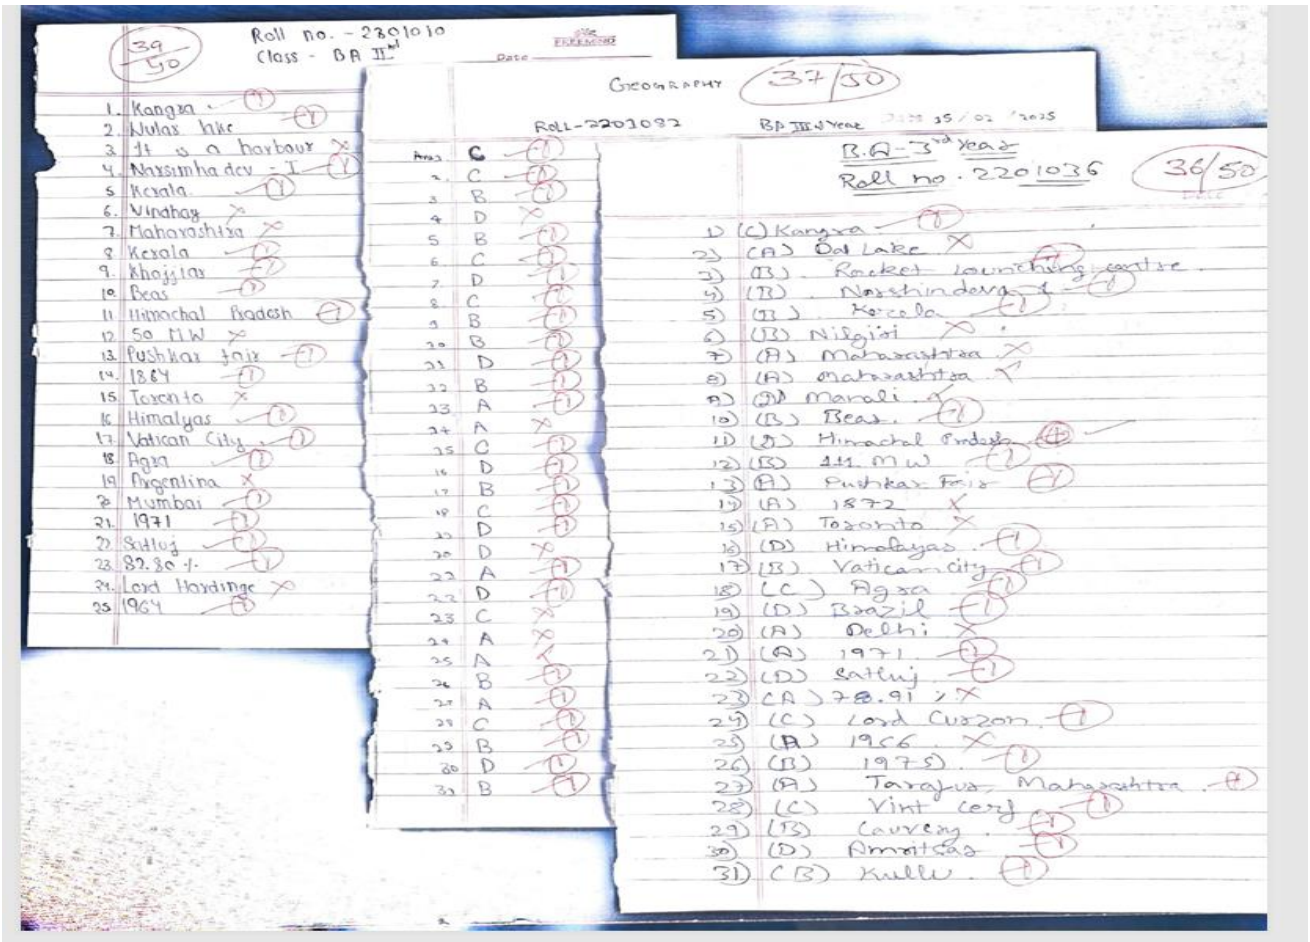 39/50
Roll no. - 2301010
Class - BA IInd
FREEMIND
Date
1. Kangra
2. Wular lake
3. It is a harbour
4. Narsimha dev - I
5. Kerala
6. Vindhay
7. Maharashtra
8. Kerala
9. Khajjiar
10. Beas
11. Himachal Pradesh
12. 50 MW
13. Pushkar fair
14. 1864
15. Toronto
16. Himalyas
17. Vatican City
18. Agra
19. Argentina
20. Mumbai
21. 1971
22. Satluj
23. 82.80 %
24. Lord Hardinge
25. 1964
GEOGRAPHY
37/50
ROLL-2201082
BA IIIrd Year
15/02/2025
Ans1 C
2. C
3 B
4 D
5 B
6 C
7 D
8 C
9 B
10 B
11 D
12 B
13 A
14 A
15 C
16 D
17 B
18 C
19 D
20 D
21 A
22 D
23 C
24 A
25 A
26 B
27 A
28 C
29 B
30 D
31 B
B.A-3rd Year
Roll no. 2201036
36/50
DATE
1) (C) Kangra
2) (A) Dal Lake
3) (B). Rocket Launching centre.
4) (B). Narshindeva I
5) (B) Kerela
6) (B) Nilgiri
7) (A) Maharashtra
8) (A) Maharashtra
9) (D) Manali.
10) (B) Beas.
11) (D) Himachal Pradesh
12) (B) 111 MW
13) (A) Pushkar Fair
14) (A) 1872
15) (A) Toronto
16) (D) Himalayas
17) (B) Vatican city
18) (C) Agra
19) (D) Brazil
20) (A) Delhi
21) (A) 1971
22) (D) Satluj
23) (A) 78.91 %
24) (C) Lord Curzon
25) (A) 1956
26) (B) 1975)
27) (A) Tarapur, Maharashtra
28) (C) Vint Cerf
29) (B) Cauvery.
30) (D) Amritsar
31) (B) Kullu.